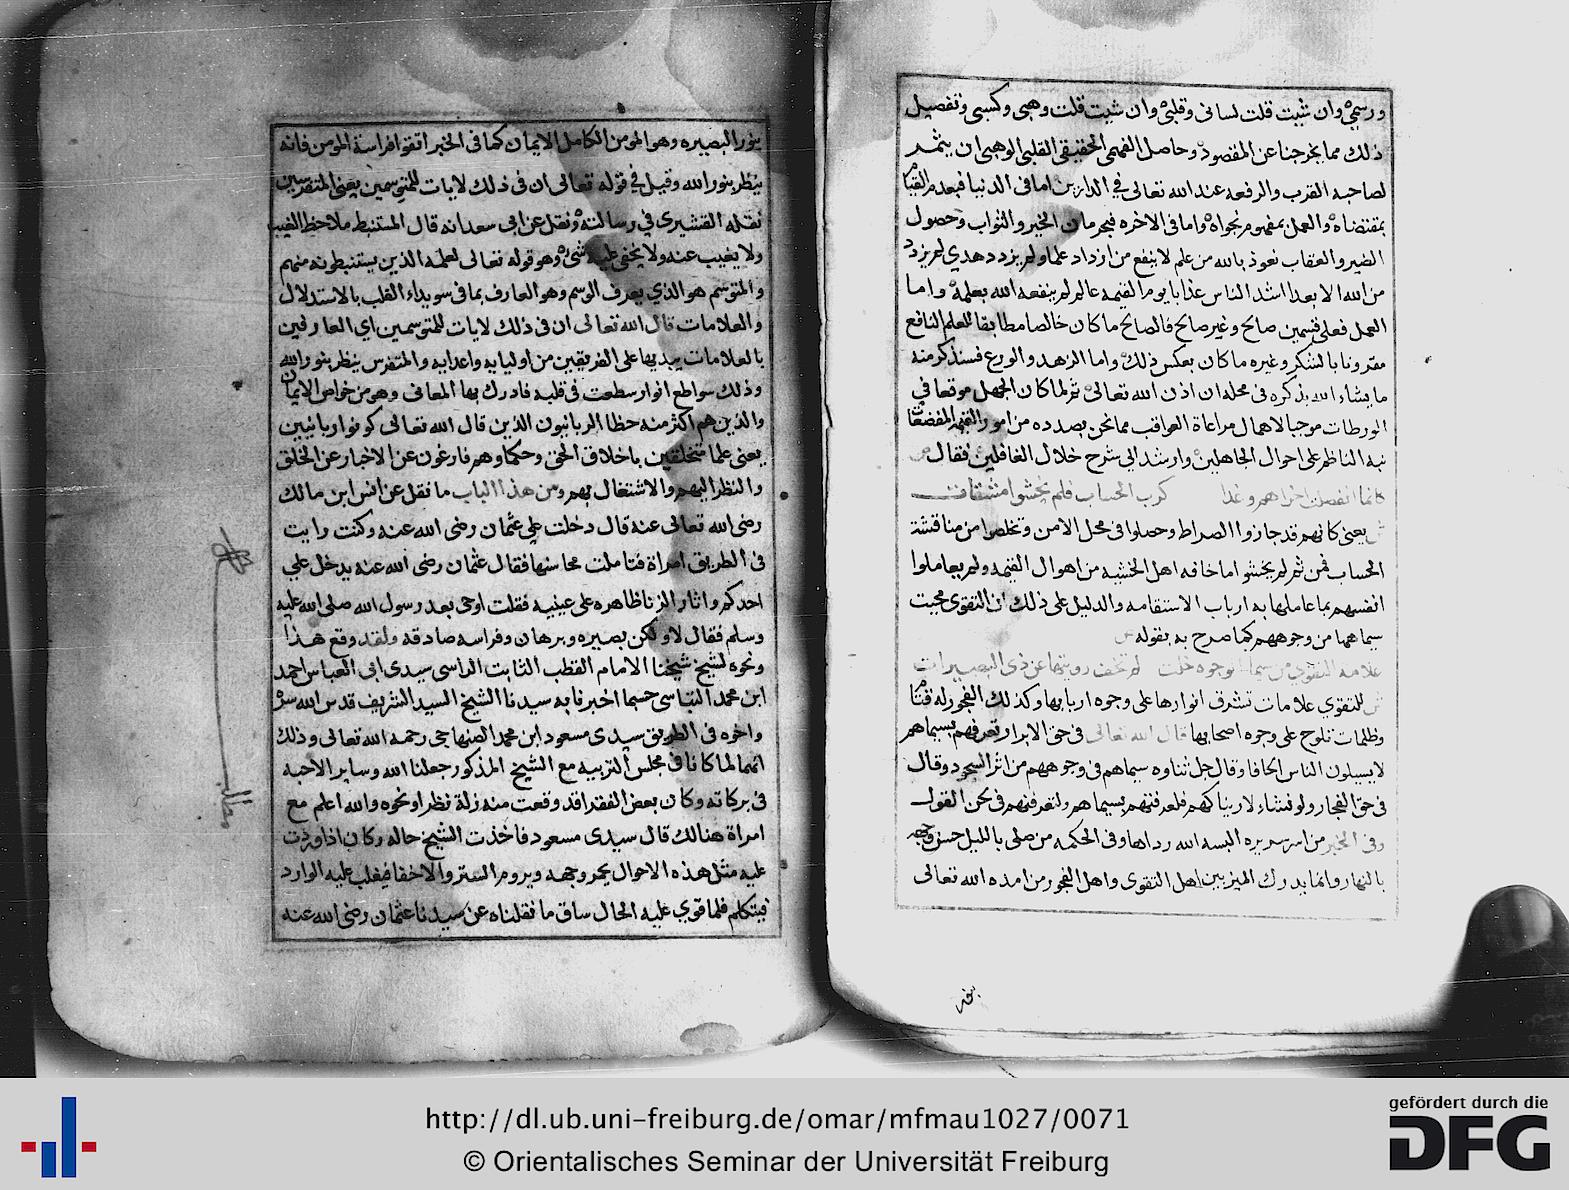 ورسمي وان شيت قلت لساني وقلبي وان شيت قلت وهبي وكسبي وتفصيل
ذلك مما يخرجنا عن المقصود وحاصل الفهمي الحقيقي القلبي الوهبي ان يثمر
لصاحبه القرب والرفعه عند الله تعالى في الدارين اما في الدنيا فبعدم القيام
بمقتضاه والعمل بمفهوم نجواه واما في الاخره فبحرمان الخير والثواب وحصول
الضير والعقاب نعوذ بالله من علم لا ينفع من ازداد علما ولم يزدد هدي لم يزدد
من الله الا بعدا اشد الناس عذابا يوم القيمه عالم لم ينفعه الله بعلمه واما
العمل فعلى قسمين صالح وغير صالح فالصالح ما كان خالصا مطابقا للعلم النافع
مقرونا بالشكر وغيره ما كان بعكس ذلك واما الزهد والورع فسنذكر منه
ما يشاء الله بذكره في محله ان اذن الله تعالى ثم لما كان الجهل موقعا في
الورطات موجبا لاهمال مراعاة العواقب مما نحن بصدده من امور القيمه المفضعات
نبه الناظم على احوال الجاهلين وارشد الى شرح خلال الغافلين فقال
كرب الحساب فلم يخشوا مشقات
يعني كانهم قد جازوا الصراط وحصلوا في محل الامن وتخلصوا من مناقشة
الحساب فمن ثم لم يخشوا ما خافه اهل الخشيه من اهوال القيمه ولم يعاملوا
انفسهم بما عاملها به ارباب الاستقامه والدليل على ذلك ان التقوى محيت
سيماهما من وجوههم كما صرح به بقوله
علامة التقوي من سيما الوجوه خلت لم تخف رويتها عن ذي البصيرات
للتقوي علامات تشرق انوارها على وجوه اربابها وكذلك الفجور له قتا
وظلمات تلوح على وجوه اصحابها قال الله تعالى في حق الابرار تعرفهم بسيماهم
لا يسيلون الناس الحافا وقال جل ثناوه سيماهم في وجوههم من اثر السجود وقال
في حق الفجار ولو نشاء لاريناكهم فلعرفتهم بسيماهم ولتعرفنهم في لحن القول
وفي الخبر من اسر سريره البسه الله رداها وفي الحكمه من صلى بالليل حسن وجهه
بالنهار وانما يدرك الميز بين اهل التقوى واهل الفجور من امده الله تعالى
بنور البصيره وهو المومن الكامل الايمان كما في الخبر اتقوا فراسة المومن فانه
ينظر بنور الله وقيل في قوله تعالى ان في ذلك لايات للمتوسمين يعني المتفرسين
نقله القشيري في رسالته ونقل عن ابي سعد انه قال المستنبط ملاحظ الغيب
ولا يغيب عنه ولا يخفى عليه شي وهو قوله تعالى لعلمه الذين يستنبطونه منهم
والمتوسم هو الذي يعرف الوسم وهو العارف بما في سويداء القلب بالاستدلال
والعلامات قال الله تعالى ان في ذلك لايات للمتوسمين اي العارفين
بالعلامات يبديها على الفريقين من اوليايه واعدايه والمتفرس ينظر بنور الله
وذلك سواطع انوار سطعت في قلبه فادرك بها المعاني وهو من خواص الايمان
والذين هم اكثر منه حظا الربانيون الذين قال الله تعالى كونوا ربانيين
يعني علما متخلقين باخلاق الحق وحكما وهم فارغون عن الاخبار عن الخلق
والنظر اليهم والاشتغال بهم ومن هذا الباب ما نقل عن انس ابن مالك
رضى الله تعالى عنه قال دخلت على عثمان رضى الله عنه وكنت رايت
في الطريق امراة فتاملت محاسنها فقال عثمان رضى الله عنه يدخل علي
احدكم واثار الزنا ظاهره على عينيه فقلت اوحى بعد رسول الله صلى الله عليه
وسلم فقال لا ولكن بصيره وبرهان وفراسه صادقه ولقد وقع هذا
ونحوه لشيخ شيخنا الامام القطب الثابت الراسي سيدى ابى العباس احمد
ابن محمد التباسي حسبما اخبرنا به سيدنا الشيخ السيد الشريف قدس الله سره
واخوه في الطريق سيدى مسعود ابن محمد الصنهاجي رحمه الله تعالى وذلك
انهما لما كانا في مجلس التربيه مع الشيخ المذكور جعلنا الله وساير الاحبه
في بركاته وكان بعض الفقرا قد وقعت منه زلة نظر او نحوه والله اعلم مع
امراة هنالك قال سيدى مسعود فاخذت الشيخ حاله وكان اذا وردت
عليه مثل هذه الاحوال يحمر وجهه ويروم الستر والاخفا فيغلب عليه الوارد
فيتكلم فلما قوي عليه الحال ساق ما نقلناه عن سيدنا عثمان رضى الله عنه
http://dl.ub.uni-freiburg.de/omar/mfmau1027/0071
© Orientalisches Seminar der Universität Freiburg
gefördert durch die
DFG